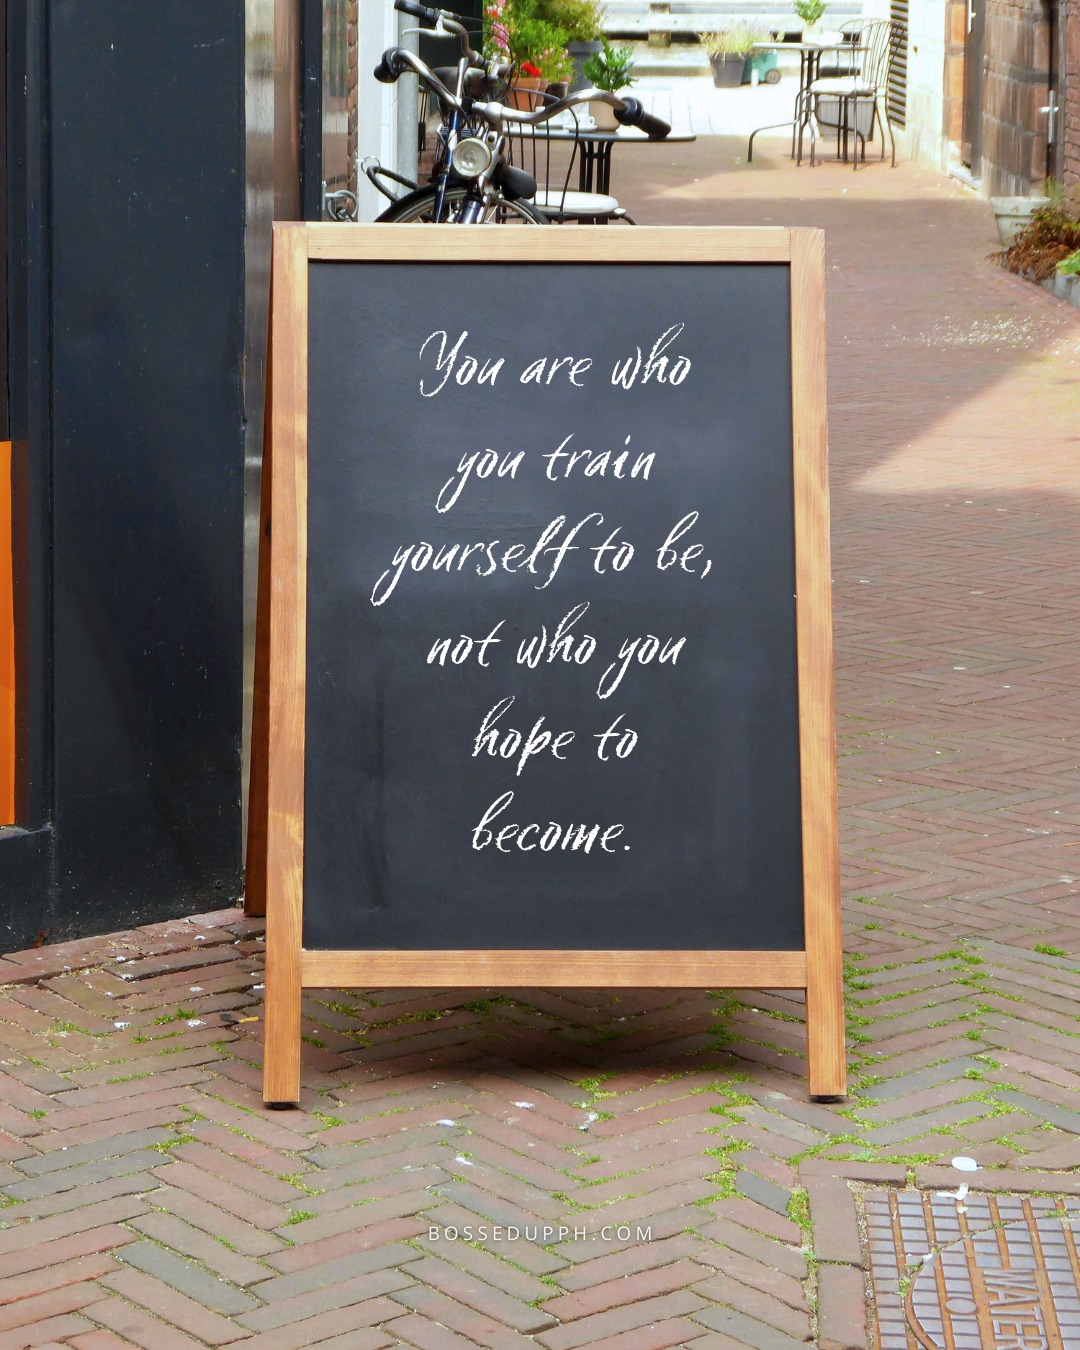 You are who
you train
yourself to be,
not who you
hope to
become.
BOSSEDUPPH.COM
WATER